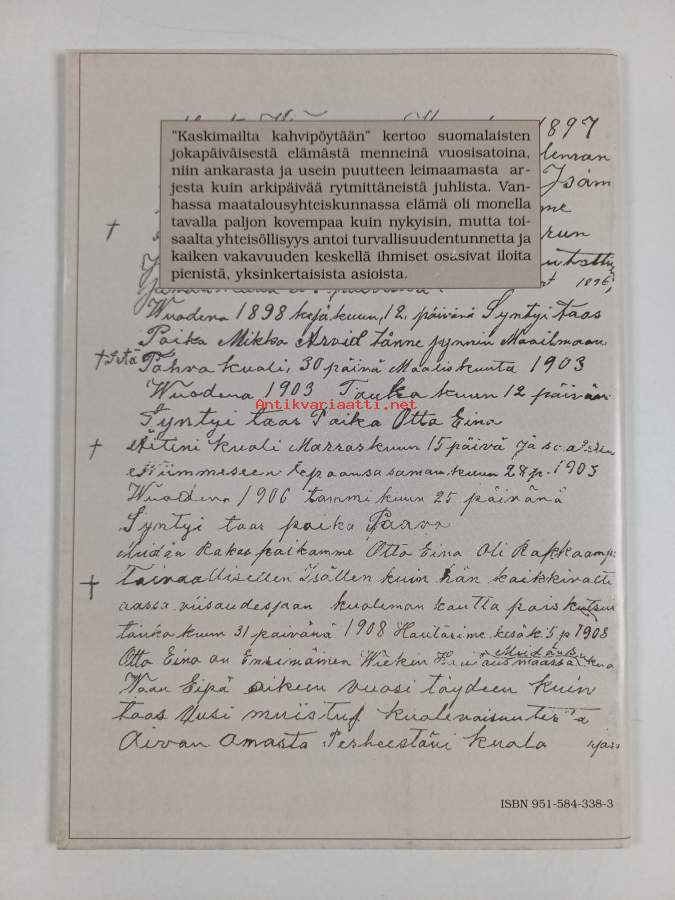 1897
"Kaskimailta kahvipöytään" kertoo suomalaisten
jokapäiväisestä elämästä menneinä vuosisatoina,
niin ankarasta ja usein puutteen leimaamasta ar-
jesta kuin arkipäivää rytmittäneistä juhlista. Van-
hassa maatalousyhteiskunnassa elämä oli monella
tavalla paljon kovempaa kuin nykyisin, mutta toi-
saalta yhteisöllisyys antoi turvallisuudentunnetta ja
kaiken vakavuuden keskellä ihmiset osasivat iloita
pienistä, yksinkertaisista asioista.
Wuodena 1898 kesäkuun, 12. päivänä Syntyi taas
Poika Mikko Arvid tänne synnin Maailmaan
kuali, 30 päinä Maaliskuuta 1903
Wuodena 1903 Toukokuun 12 päivän
Antikvariaatti.net
Syntyi taas Poika Otto Eino
Äiteni kuali Marraskuun 15 päivä ja
Wiimmeseen saman kuun 28 p. 1903
Wuodena 1906 tammikuun 25 päivänä
Syntyi taas poika Paavo
Meidän Rakas poikamme Otto Eino Oli
taivaallisellen Isällen kuin hän kaikkivalti
aassa viisaudesaan kualeman kautta pois kutsui
touko kuun 31 päivänä 1908 kesäk. 5 p 1908
Otto Eino on Ensimäinen
Waan Eipä oikeen vuosi täydeen kuin
taas Uusi muistus
Aivan omasta Perheestäni kuala
ISBN 951-584-338-3